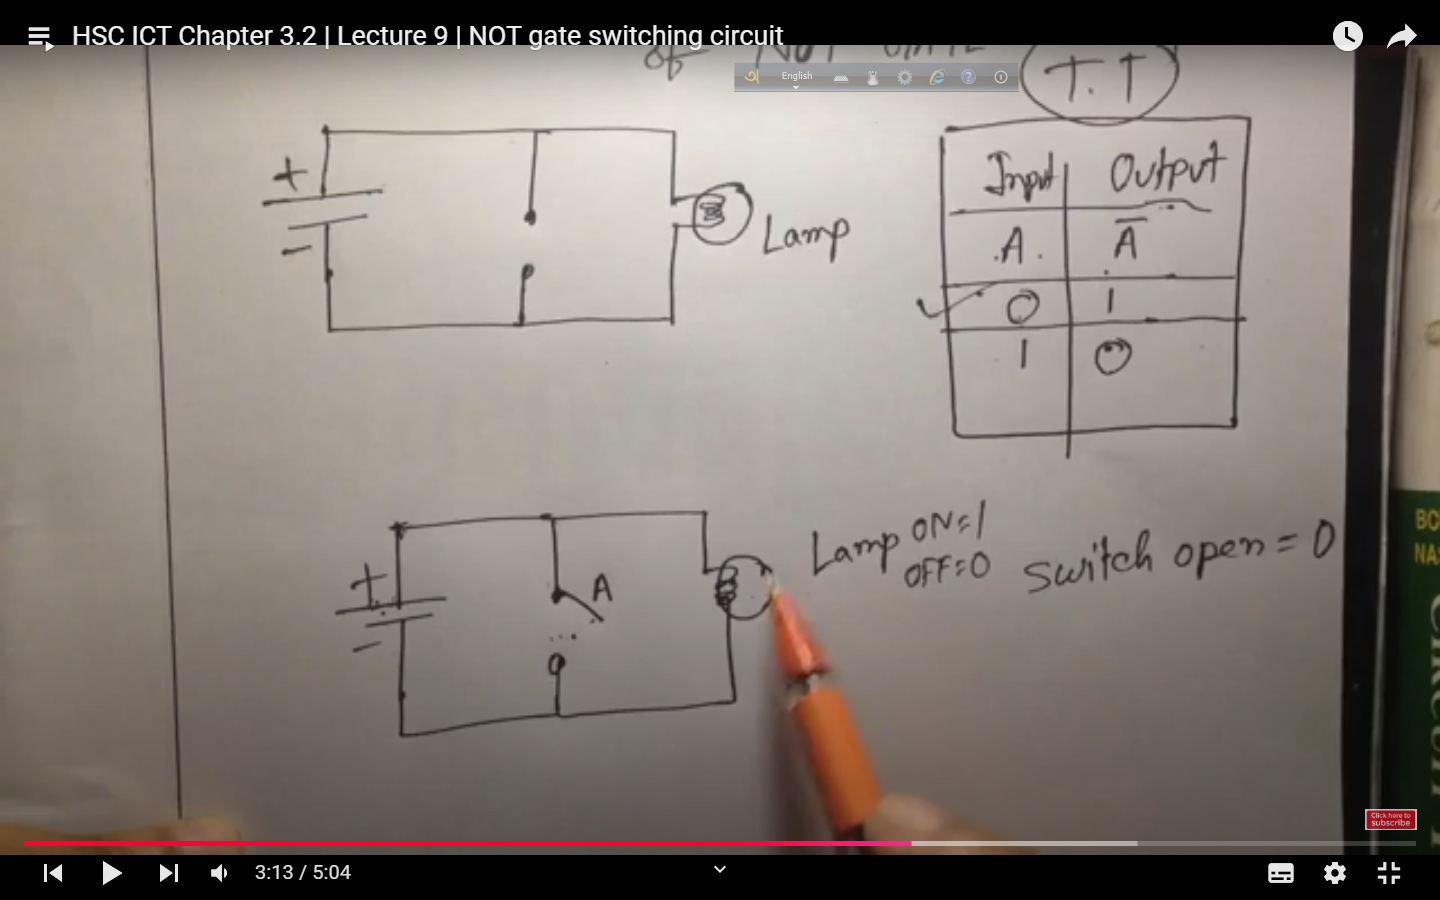 HSC ICT Chapter 3.2 | Lecture 9 | NOT gate switching circuit
of NOT GATE
English
T.T
Input Output
A A̅
0 1
1 0
+
-
Lamp
Lamp ON=1
OFF=0
Switch open = 0
+
A
-
BO
NAS
Click here to
subscribe
3:13 / 5:04